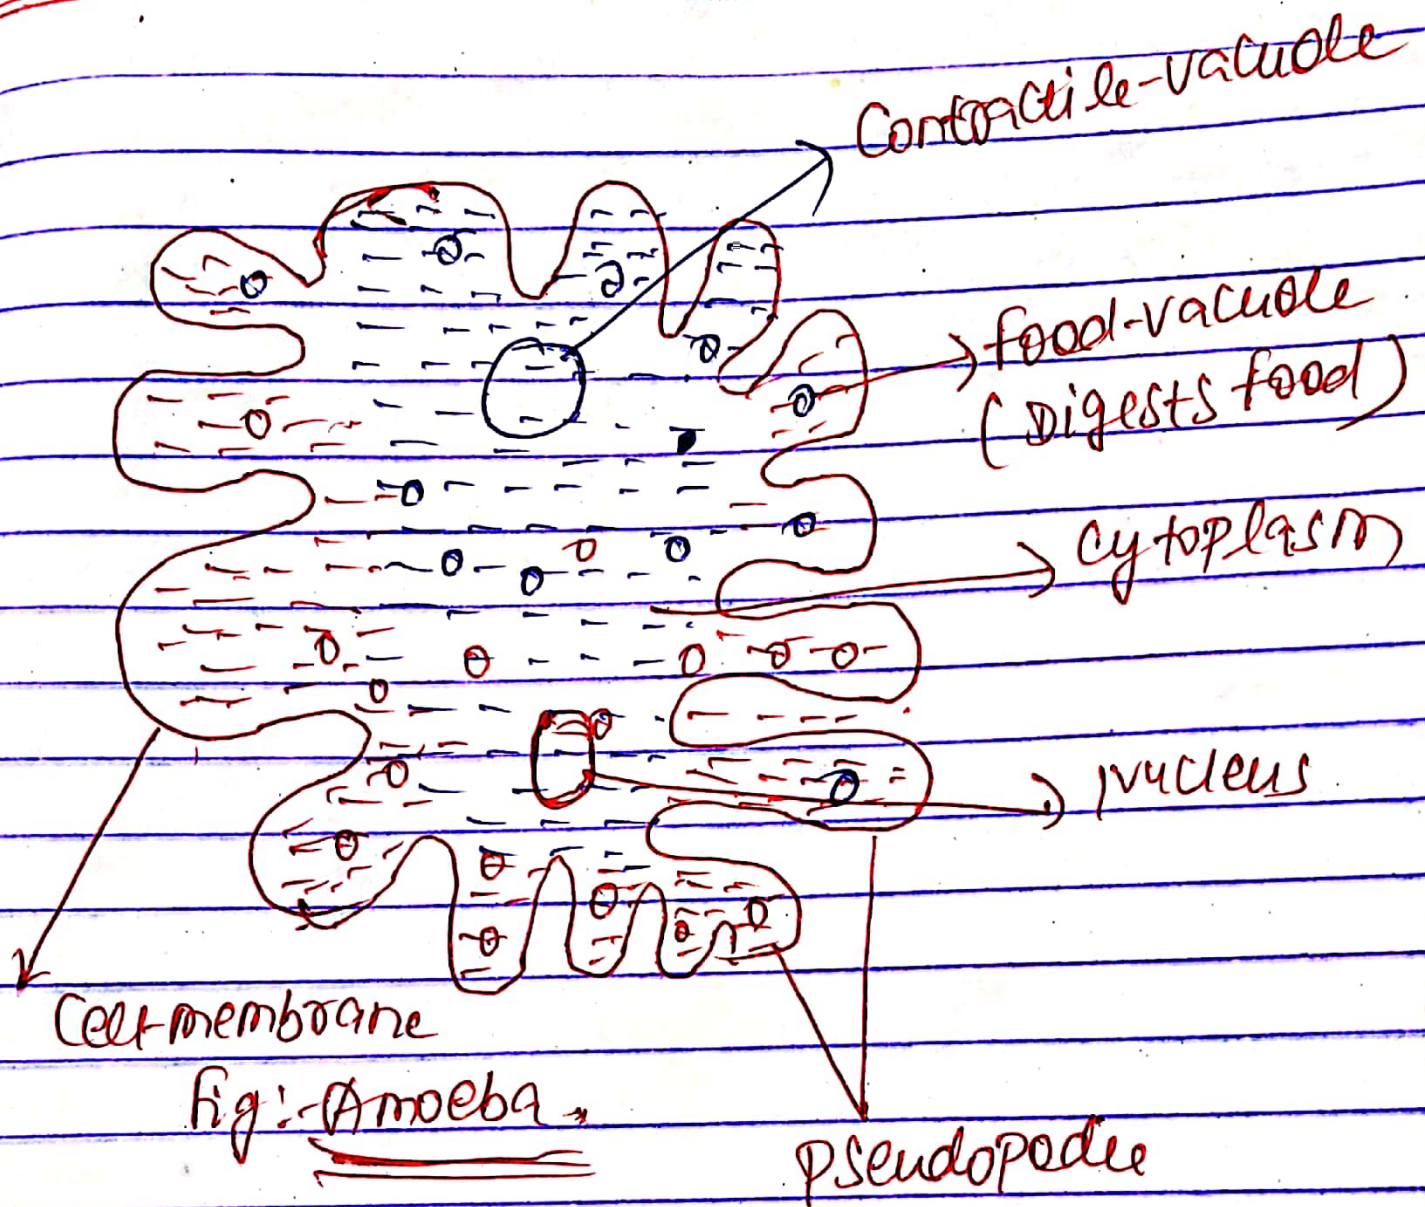 Contractile-vacuole
food-vacuole
(Digests food)
cytoplasm
Nucleus
Cell-membrane
fig:-Amoeba.
Pseudopodia